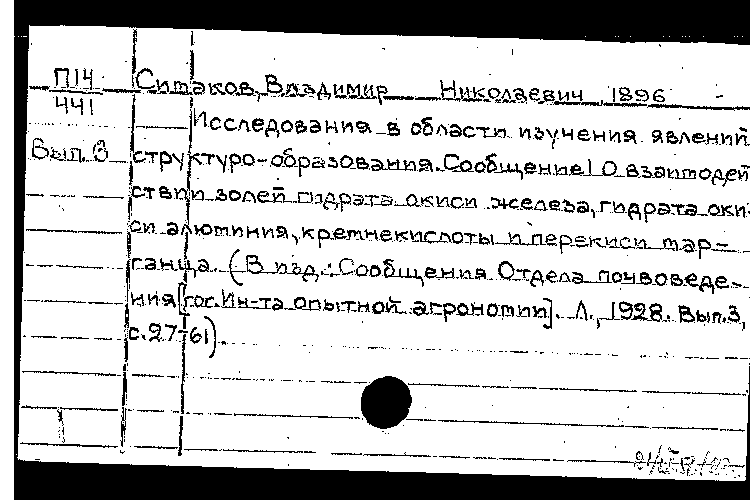 П14
441
Вып. 3
Ситаков, Владимир Николаевич, 1896 -
Исследования в области изучения явлений
структуро-образования. Сообщение 1 О взаимодей
ствии золей гидрата окиси железа, гидрата оки-
си алюминия, кремнекислоты и перекиси мар-
ганца. (В изд.: Сообщения Отдела почвоведе-
ния [гос. Ин-та опытной агрономии]. Л., 1928. Вып. 3,
с. 27-61).